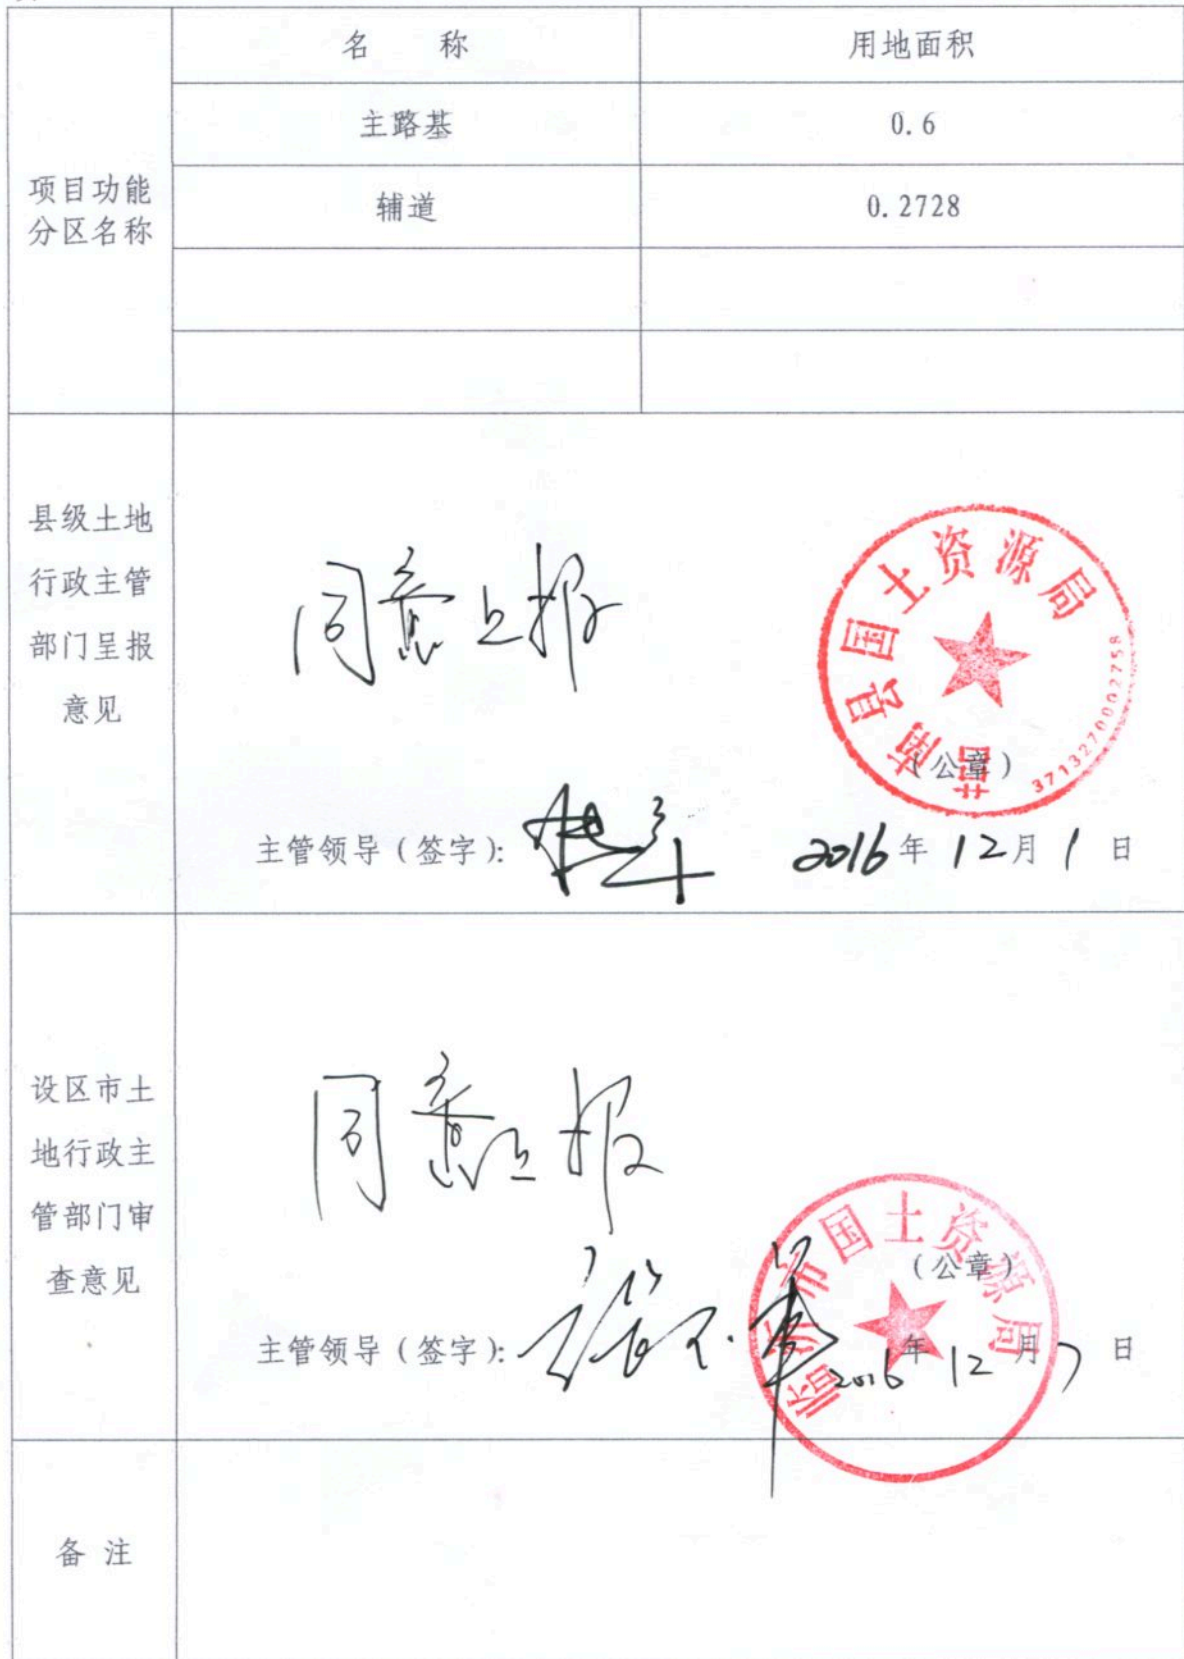 名 称 用地面积
主路基 0.6
项目功能
分区名称
辅道 0.2728
县级土地
行政主管
部门呈报
意见
同意上报
莒南县国土资源局
3713270002758
(公章)
主管领导(签字):
2016年12月1日
设区市土
地行政主
管部门审
查意见
同意上报
临沂市国土资源局
(公章)
主管领导(签字):
2016年12月7日
备 注